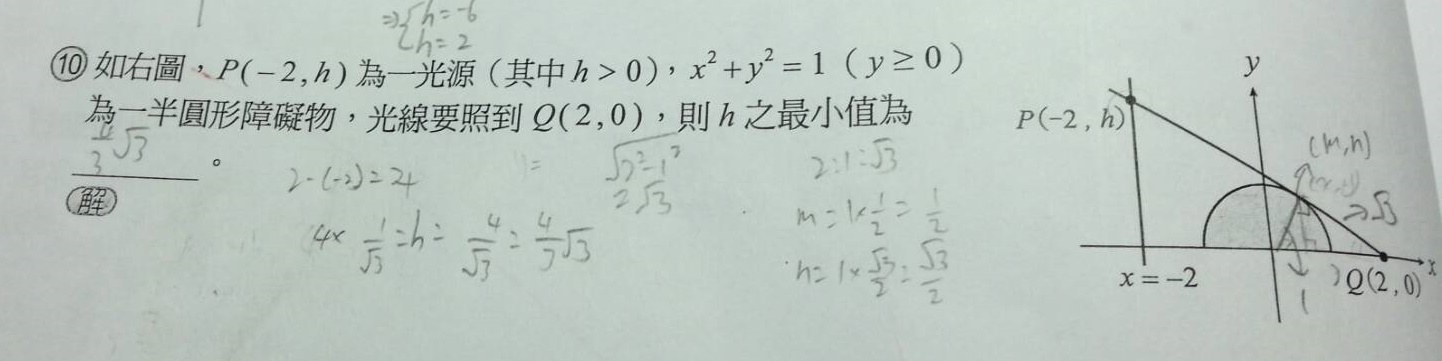 ⇒{h=-6
h=2
⑩ 如右圖，P(-2, h) 為一光源（其中 h > 0），x²+y² = 1（y ≥ 0）
為一半圓形障礙物，光線要照到 Q(2, 0)，則 h 之最小值為
4/3 √3 。
解
2-(-2)=4
4× 1/√3 = h = 4/√3 = 4/3 √3
√2²-1²
2√3
2:1:√3
m = 1×1/2 = 1/2
n = 1×√3/2 = √3/2
y
P(-2, h)
(m,n)
√3
x
x = -2
1
Q(2, 0)